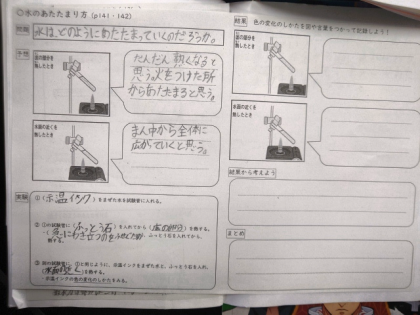 ◎水のあたたまり方（p141・142）
問題 水は、どのようにあたたまっていくのだろうか。
予想
試験管の底を熱したとき
だんだん熱くなると
思う。火をつけた所
からあたたまると思う。
水面の近くを熱したとき
まん中から全体に
広がっていくと思う。
実験
①（示温インク）をまぜた水を試験管に入れる。
②①の試験管に（ふっとう石）を入れてから（底の部分）を
熱する。
③別の試験管に、①と同じように、示温インクをまぜた水と、ふっとう石を入れ、
（水面の近く）を熱する。
・示温インクの色の変化のしかたをみる。
結果 色の変化のしかたを図や言葉をつかって記録しよう！
試験管の底を熱したとき
水面の近くを熱したとき
結果から考えよう
まとめ